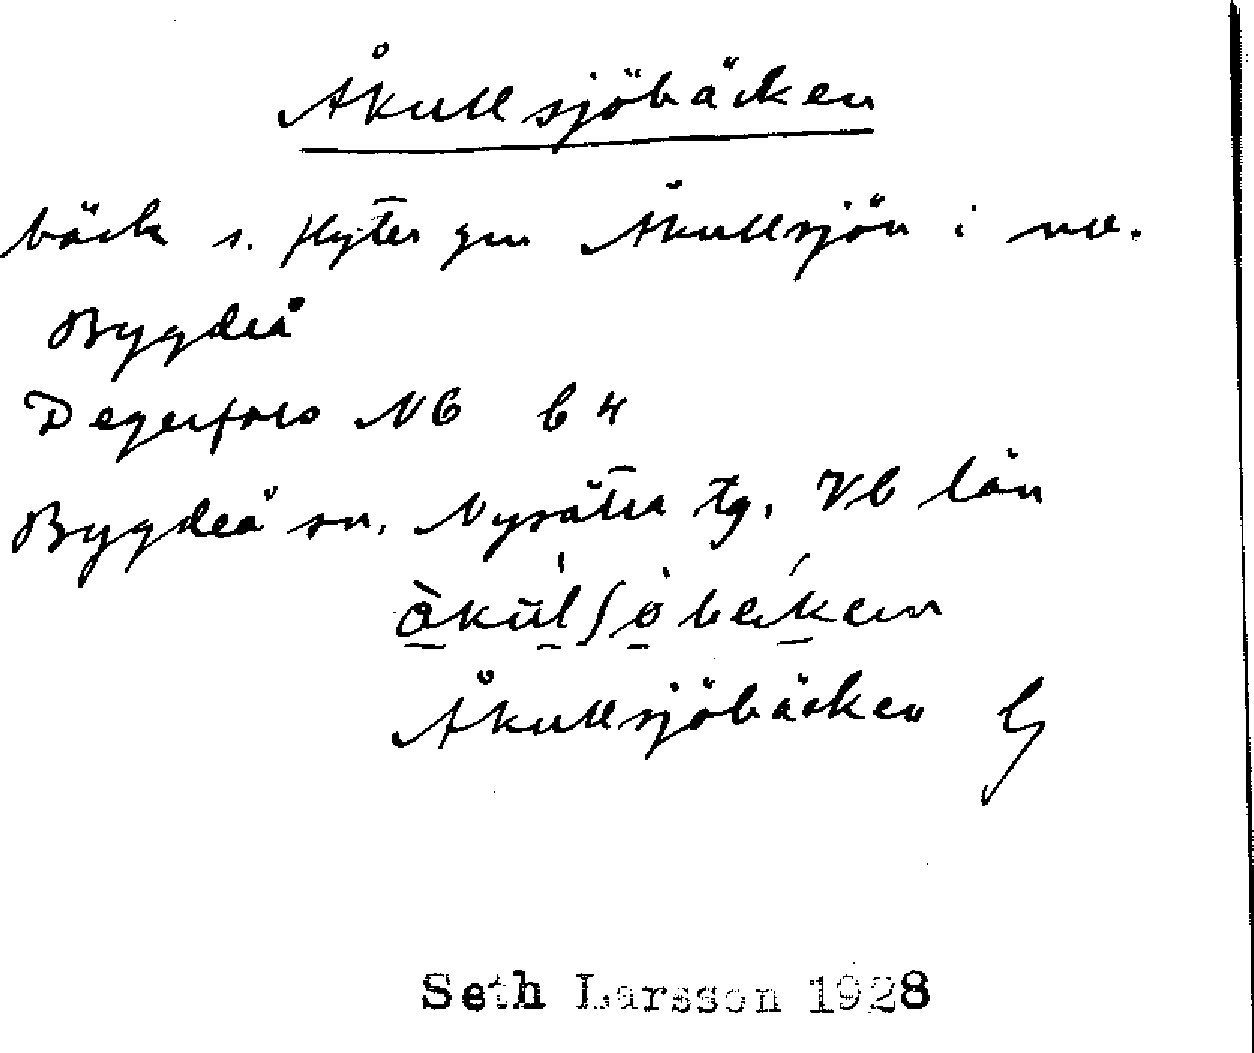 Åkullsjöbäcken
bäck s. flyter gm Åkullsjön i nv.
Bygdeå
Degerfors NB b 4
Bygdeå sn. Nysätra tg. Vb län
Åkullsjöbäcken G
Seth Larsson 1928